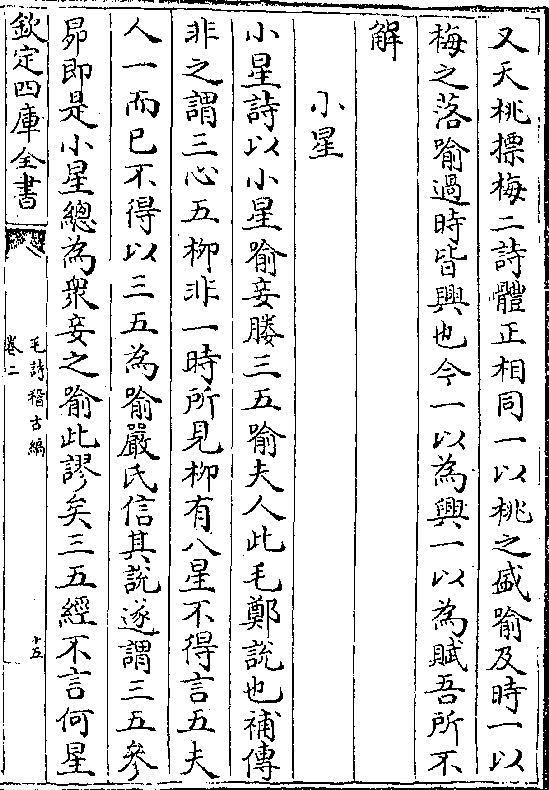 又夭桃摽梅二詩體正相同一以桃之盛喻及時一以
梅之落喻過時皆興也今一以為興一以為賦吾所不
解
小星
小星詩以小星喻妾媵三五喻夫人此毛鄭說也補傳
非之謂三心五柳非一時所見柳有八星不得言五夫
人一而已不得以三五為喻嚴氏信其說遂謂三五參
昴即是小星總為衆妾之喻此謬矣三五經不言何星
欽定四庫全書
毛詩稽古編
卷二
十五